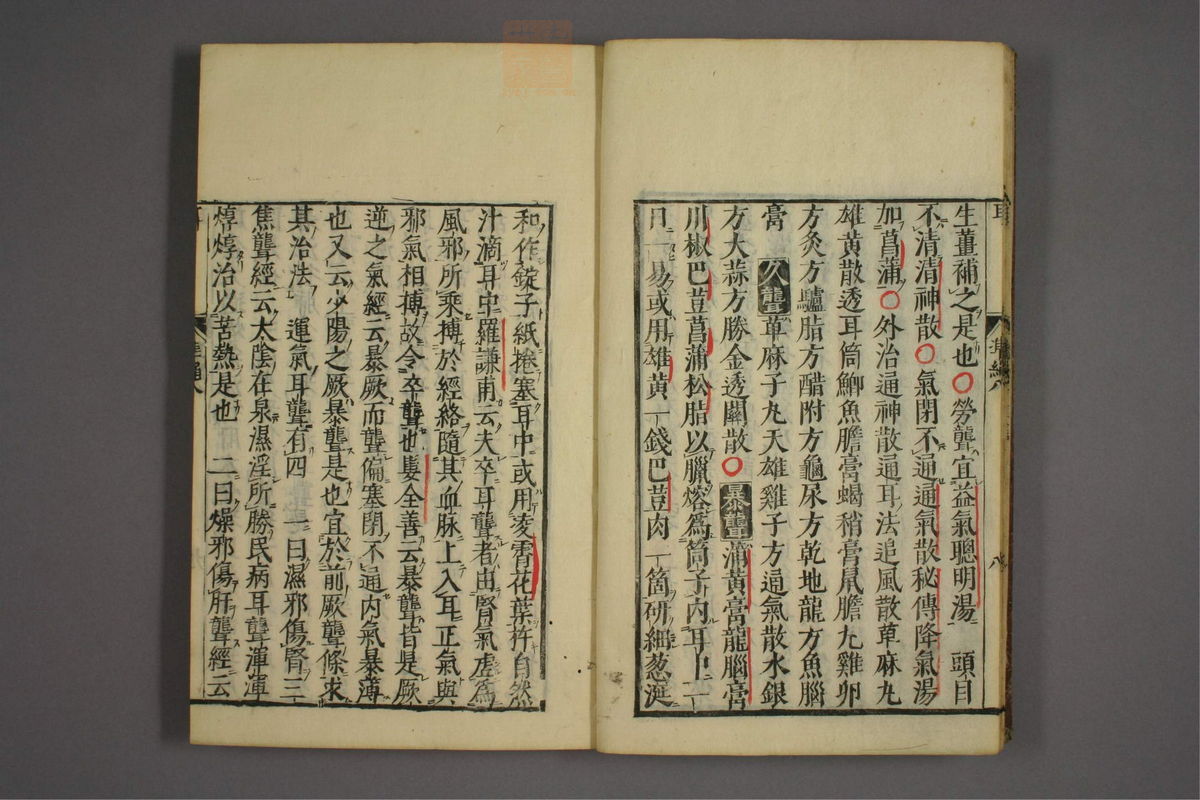 生薑補之是也○勞聾宜益氣聰明湯　頭目
不清清神散○氣閉不通通氣散秘傳降氣湯
加菖蒲○外治通神散通耳法追風散萆麻丸
雄黃散透耳筒鯽魚膽膏蝎稍膏鼠膽丸雞卵
方灸方驢脂方醋附方龜尿方乾地龍方魚腦
膏　久聾萆麻子丸天雄雞子方通氣散水銀
方大蒜方勝金透關散○暴聾蒲黃膏龍腦膏
川椒巴荳菖蒲松脂以臘熔爲筒子內耳中一
日一易或用雄黃一錢巴荳肉一箇研細葱涎
和作錠子紙捲塞耳中或用凌霄花葉杵自然
汁滴耳中羅謙甫云夫卒耳聾者出腎氣虛爲
風邪所乘搏於經絡隨其血脉上入耳正氣與
邪氣相搏故令卒聾也婁全善云暴聾皆是厥
逆之氣經云暴厥而聾偏塞閉不通內氣暴薄
也又云少陽之厥暴聾是也宜於前厥聾條求
其治法　運氣耳聾有四　一曰濕邪傷腎三
焦聾經云太陰在泉濕淫所勝民病耳聾渾渾
焞焞治以苦熱是也　二曰燥邪傷肝聾經云
耳
八